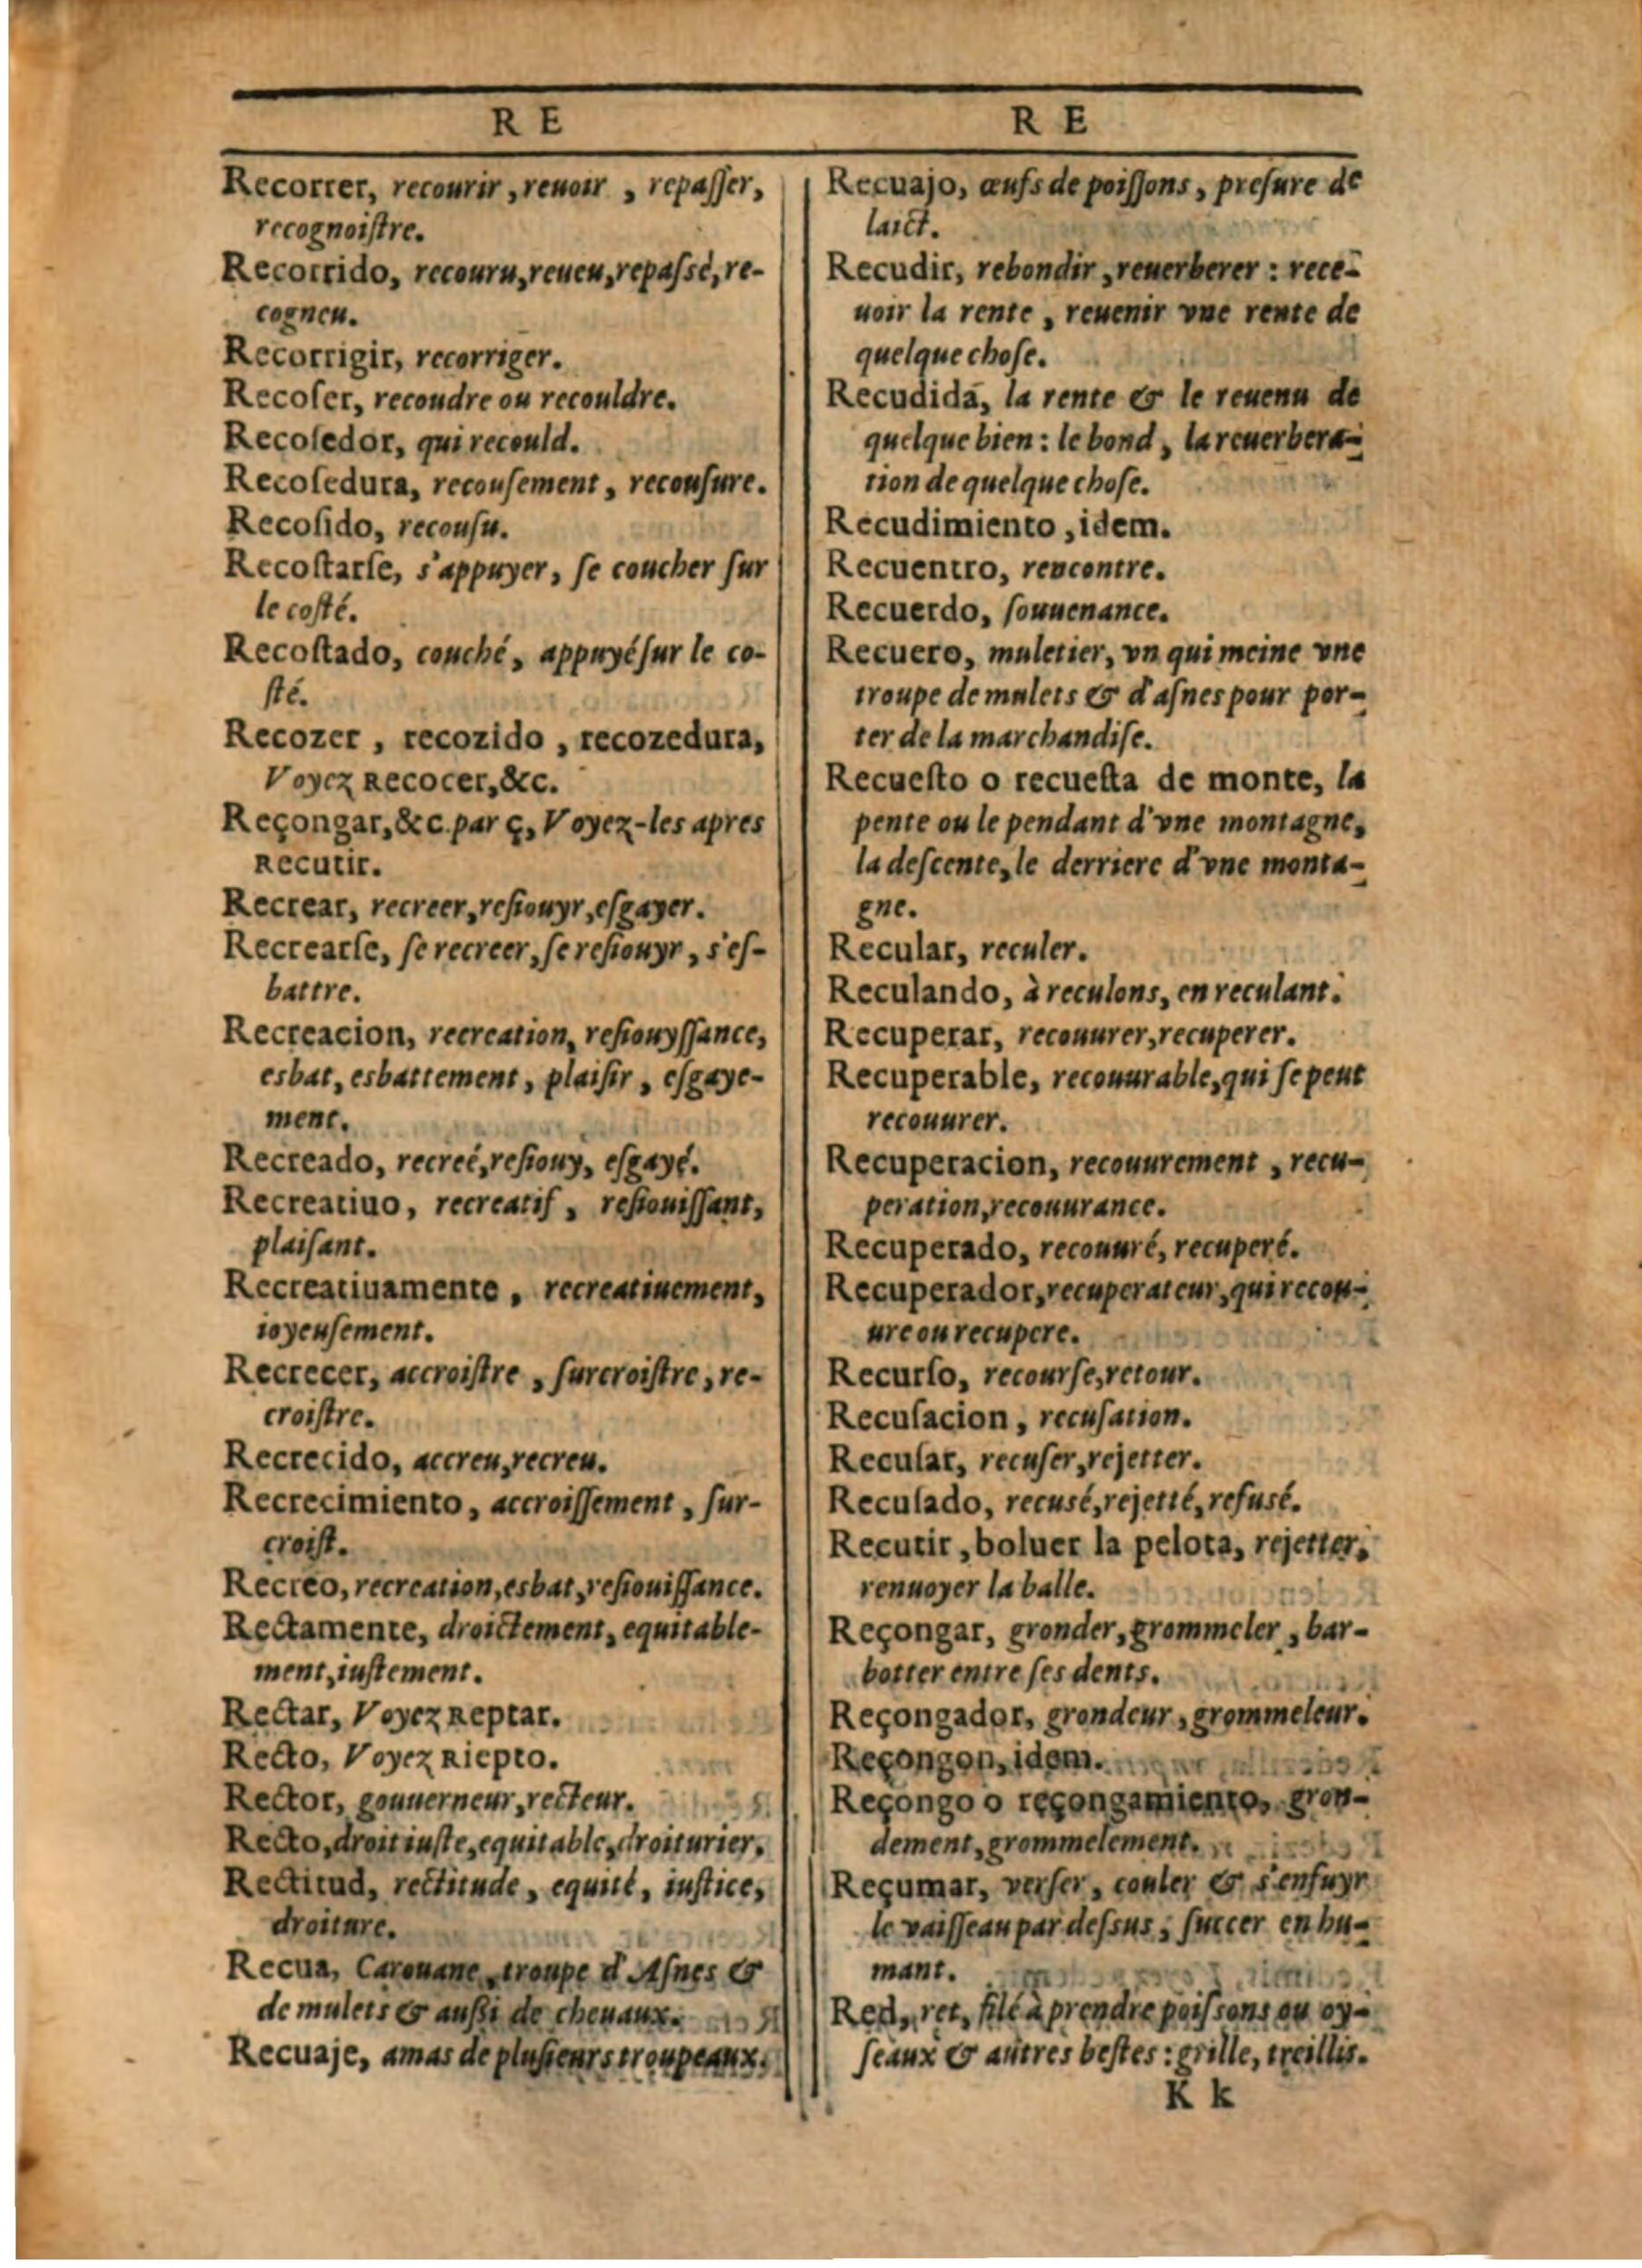 RE
Recorrer, recourir, reuoir, repaſſer,
recognoiſtre.
Recorrido, recouru, reueu, repaſsé, re-
cogneu.
Recorrigir, recorriger.
Recoſer, recoudre ou recouldre.
Recoſedor, qui recould.
Recoſedura, recouſement, recouſure.
Recoſido, recouſu.
Recoſtarſe, s'appuyer, ſe coucher ſur
le coſté.
Recoſtado, couché, appuyé ſur le co-
ſté.
Recozer, recozido, recozedura,
Voyez Recocer, &c.
Reçongar, &c. par ç, Voyez-les apres
Recutir.
Recrear, recreer, reſiouyr, eſgayer.
Recrearſe, ſe recreer, ſe reſiouyr, s'eſ-
battre.
Recreacion, recreation, reſiouyſſance,
esbat, esbattement, plaiſir, eſgaye-
ment.
Recreado, recreé, reſiouy, eſgayé.
Recreatiuo, recreatif, reſiouiſſant,
plaiſant.
Recreatiuamente, recreatiuement,
ioyeuſement.
Recrecer, accroiſtre, ſurcroiſtre, re-
croiſtre.
Recrecido, accreu, recreu.
Recrecimiento, accroiſſement, ſur-
croiſt.
Recreo, recreation, esbat, reſiouiſſance.
Rectamente, droictement, equitable-
ment, iuſtement.
Rectar, Voyez Reptar.
Recto, Voyez Riepto.
Rector, gouuerneur, recteur.
Recto, droit iuſte, equitable, droiturier.
Rectitud, rectitude, equité, iuſtice,
droiture.
Recua, Carouane, troupe d'Aſnes &
de mulets & auſsi de cheuaux.
Recuaje, amas de pluſieurs troupeaux.
RE
Recuajo, œufs de poiſſons, preſure de
laict.
Recudir, rebondir, reuerberer : rece-
uoir la rente, reuenir vne rente de
quelque choſe.
Recudida, la rente & le reuenu de
quelque bien : le bond, la reuerbera-
tion de quelque choſe.
Recudimiento, idem.
Recuentro, rencontre.
Recuerdo, ſouuenance.
Recuero, muletier, vn qui meine vne
troupe de mulets & d'aſnes pour por-
ter de la marchandiſe.
Recueſto o recueſta de monte, la
pente ou le pendant d'vne montagne,
la deſcente, le derriere d'vne monta-
gne.
Recular, reculer.
Reculando, à reculons, en reculant.
Recuperar, recouurer, recuperer.
Recuperable, recouurable, qui ſe peut
recouurer.
Recuperacion, recouurement, recu-
peration, recouurance.
Recuperado, recouuré, recuperé.
Recuperador, recuperateur, qui recou-
ure ou recupere.
Recurſo, recourſe, retour.
Recuſacion, recuſation.
Recuſar, recuſer, rejetter.
Recuſado, recusé, rejetté, refusé.
Recutir, boluer la pelota, rejetter,
renuoyer la balle.
Reçongar, gronder, grommeler, bar-
botter entre ſes dents.
Reçongador, grondeur, grommeleur.
Reçongon, idem.
Reçongo o reçongamiento, gron-
dement, grommelement.
Reçumar, verſer, couler & s'enfuyr
le vaiſſeau par deſsus, ſuccer en hu-
mant.
Red, ret, filé à prendre poiſsons ou oy-
ſeaux & autres beſtes : grille, treillis.
K k